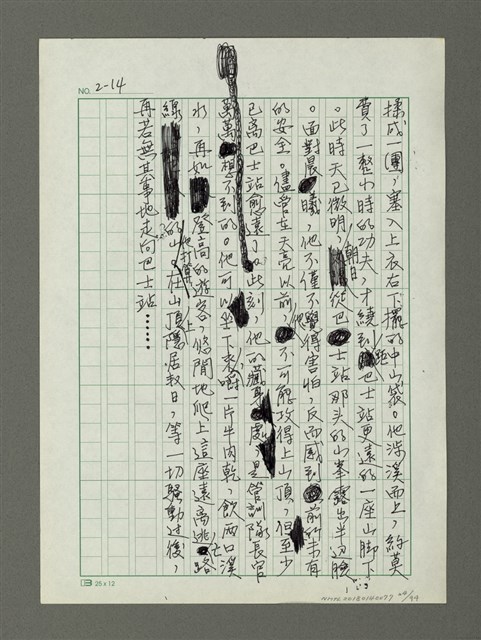 NO. 2-14
揉成一團，塞入上衣右下擺的中山袋。他涉溪而上，約莫
費了一整小時的功夫，才繞到距巴士站更遠的一座山腳下
。此時天已微明，朝日從巴士站那头的山峯露出半边臉
。面對晨曦，他不僅不覺得害怕，反而感到前所未有
的安全。儘管在天亮以前，他不可能攻得上山頂，但至少
已离巴士站愈遠了。此刻，他的藏身處是管訓隊長官
萬萬想不到的。他可以坐下來嚼一片牛肉乾，飲兩口溪
水，再如登高的遊客，悠閒地爬上這座遠离逃亡路
線的山。他打算在山頂上隱居数日，等一切騷動过後，
再若無其事地走向巴士站……
25×12